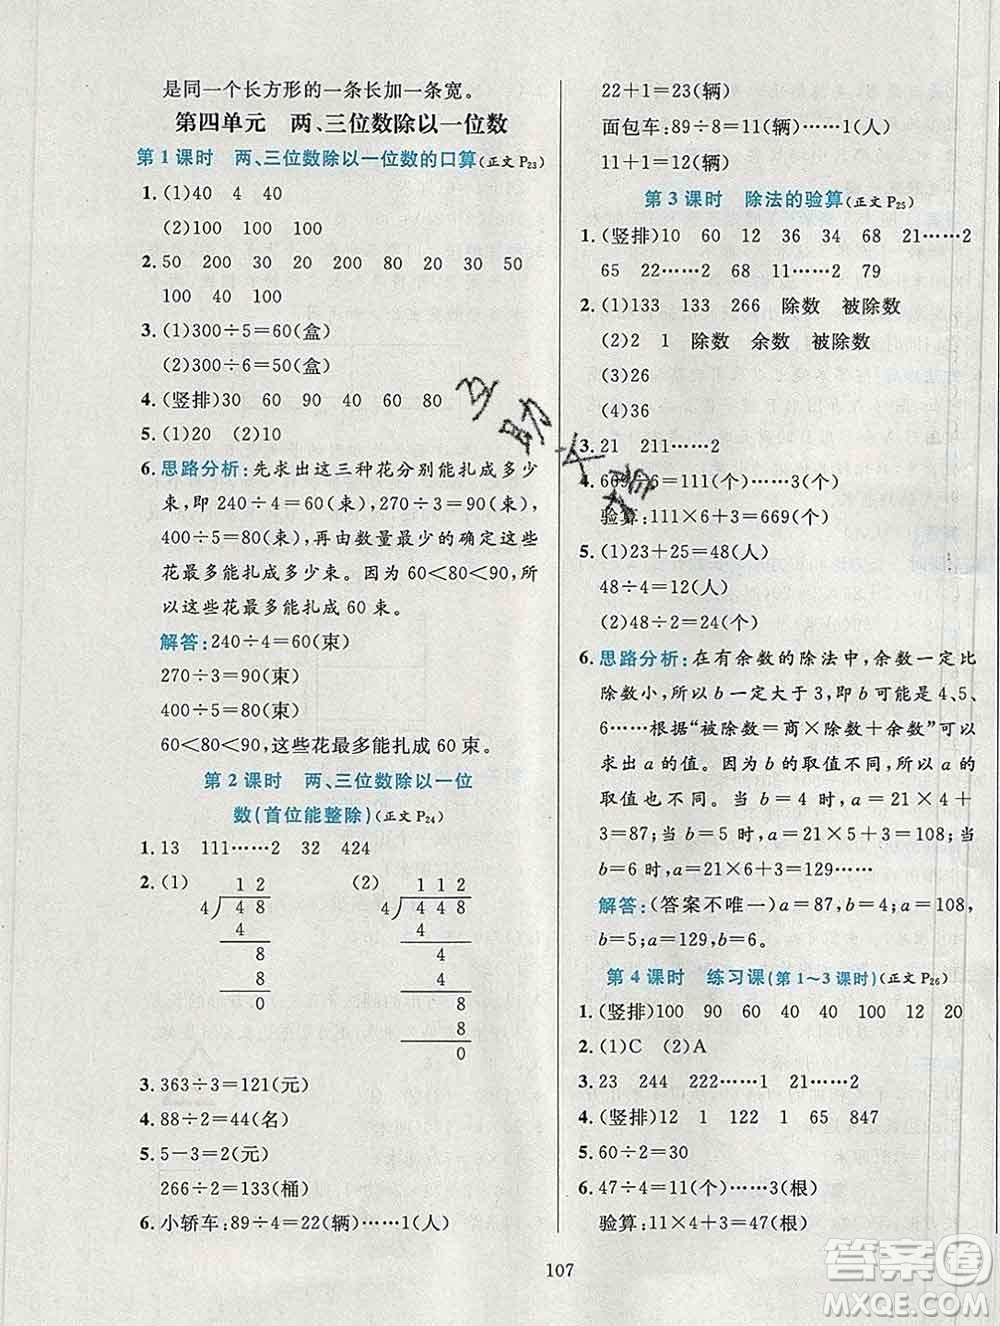 是同一个长方形的一条长加一条宽。
第四单元 两、三位数除以一位数
第1课时 两、三位数除以一位数的口算(正文P23)
1. (1)40 4 40
(2)100 100 100
2. 50 200 200 80 20 30 50
100 40 100
3. (1)300÷5=60(盒)
(2)300÷6=50(盒)
4. (竖排)30 60 90 40 60 80
5. (1)20 (2)10
6. 思路分析:先求出这三种花分别能扎成多少
束,即240÷4=60(束),270÷3=90(束),
400÷5=80(束),再由数量最少的确定这些
花最多能扎成多少束。因为60<80<90,所
以这些花最多能扎成60束。
解答:240÷4=60(束)
270÷3=90(束)
400÷5=80(束)
60<80<90,这些花最多能扎成60束。
第2课时 两、三位数除以一位
数(首位能整除)(正文P24)
1. 13 111……2 32 424
2. (1) 12
4 48
4
8
8
0
(2) 112
4 448
4
4
4
8
8
0
3. 363÷3=121(元)
4. 88÷2=44(名)
5. 5-3=2(元)
266÷2=133(桶)
6. 小轿车:89÷4=22(辆)……1(人)
22+1=23(辆)
面包车:89÷8=11(辆)……1(人)
11+1=12(辆)
第3课时 除法的验算(正文P25)
1. (竖排)10 60 12 36 34 68 21……2
65 22……2 70 11……2 79
2. (1)133 133 266 除数 被除数
(2)2 1 除数 余数 被除数
(3)26
(4)36
3. 21 211……2
4. 669÷6=111(个)……3(个)
验算:111×6+3=669(个)
5. (1)23+25=48(人)
48÷4=12(人)
(2)48÷2=24(个)
6. 思路分析:在有余数的除法中,余数一定比
除数小,所以b一定大于3,即b可能是4、5、
6……根据“被除数=商×除数+余数”可以
求出a的值。因为b的取值不同,所以a的
取值也不同。当b=4时,a=21×4+
3=87;当b=5时,a=21×5+3=108;当
b=6时,a=21×6+3=129……
解答:(答案不唯一)a=87,b=4;a=108,
b=5;a=129,b=6。
第4课时 练习课(第1~3课时)(正文P26)
1. (竖排)100 90 60 40 40 100 20
2. (1)C (2)A
3. 23 244 222……1 21……2
4. (竖排)12 1 122 1 65 847
5. 60÷2=30
6. 47÷4=11(个)……3(根)
验算:11×4+3=47(根)
107
答案圈
MXQE.COM